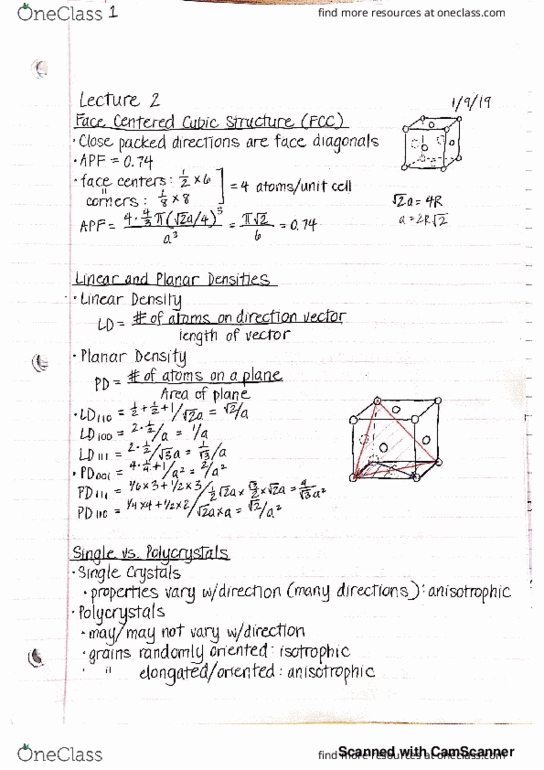 OneClass 1
find more resources at oneclass.com
Lecture 2
1/9/19
Face Centered Cubic Structure (FCC)
· Close packed directions are face diagonals
· APF = 0.74
· face centers: 1/2 × 6
" corners: 1/8 × 8 ] = 4 atoms/unit cell
√2a = 4R
a = 2R√2
APF = 4·4/3 π(√2a/4)³ / a³ = π√2 / 6 = 0.74
Linear and Planar Densities
· Linear Density
LD = # of atoms on direction vector / length of vector
· Planar Density
PD = # of atoms on a plane / Area of plane
· LD110 = 1/2 + 1/2 + 1/√2a = √2/a
LD100 = 2·1/2/a = 1/a
LD111 = 2·1/2/√3a = 1/√3/a
· PD001 = 4·1/4+1/a² = 2/a²
PD111 = 1/6×3+1/2×3/1/2√2a×√3/2×√2a = 4/√3a²
PD110 = 1/4×4+1/2×2/√2a×a = √2/a²
Single vs. Polycrystals
· Single Crystals
· properties vary w/direction (many directions): anisotrophic
· Polycrystals
· may/may not vary w/direction
· grains randomly oriented: isotrophic
· " elongated/oriented: anisotrophic
OneClass
find more resources at oneclass.com
Scanned with CamScanner